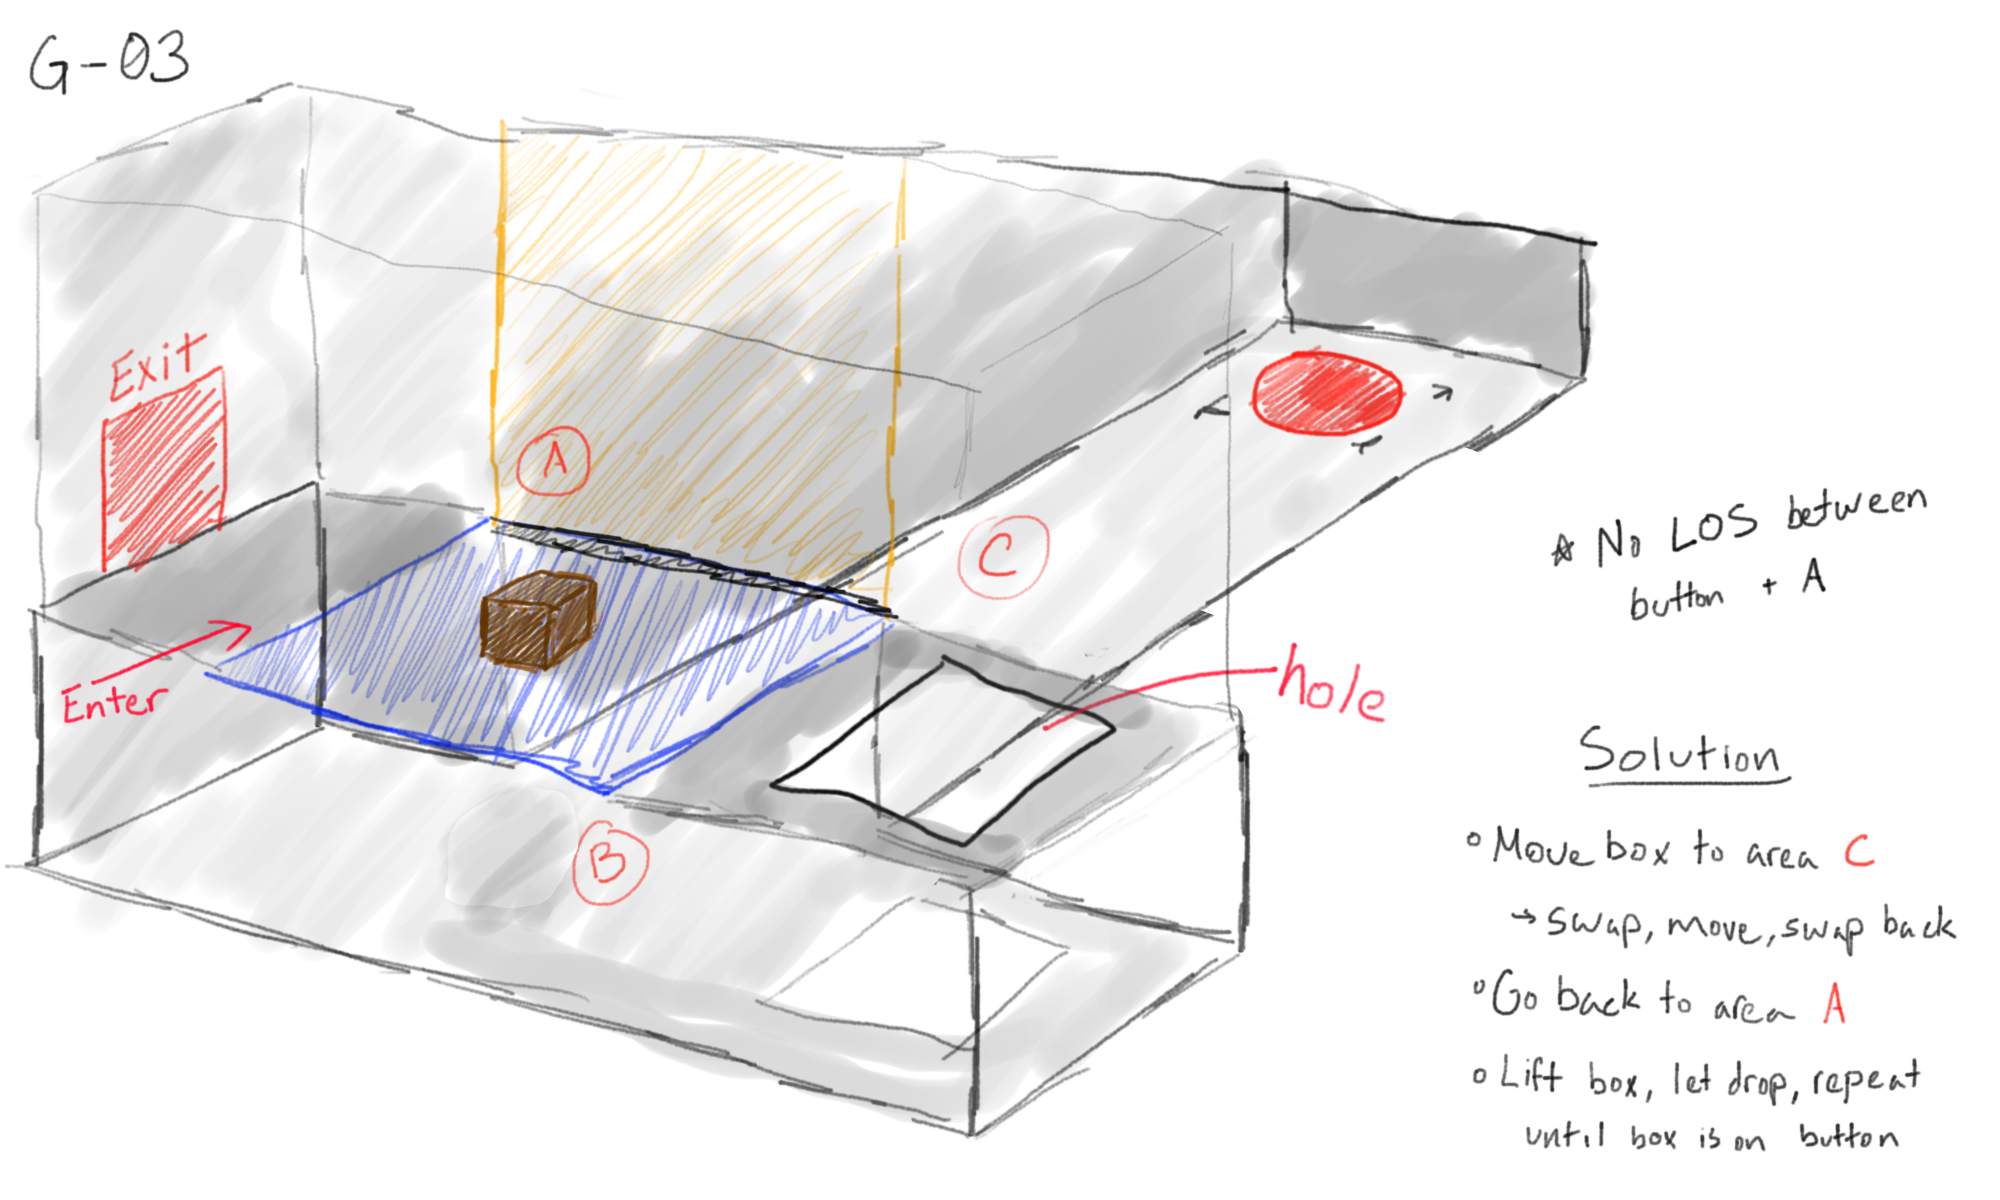 G-03
Exit
A
C
Enter
B
hole
* No LOS between
button + A
Solution
◦ Move box to area C
→ swap, move, swap back
◦ Go back to area A
◦ Lift box, let drop, repeat
until box is on button